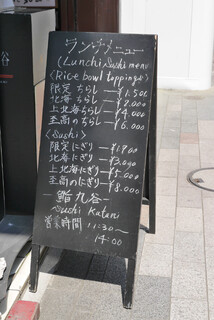 ランチメニュー
(Lunch Sushi menu)
<Rice bowl toppings>
限定ちらし—¥1.500
北海ちらし—¥2.000
上北海ちらし—¥4.000
至高のちらし—¥6.000
<Sushi>
限定にぎり—¥1.900
北海にぎり—¥3.000
上北海にぎり—¥5.000
至高のにぎり—¥8.000
鮨 九谷
Sushi Kutani
営業時間 11:30〜
14:00
谷